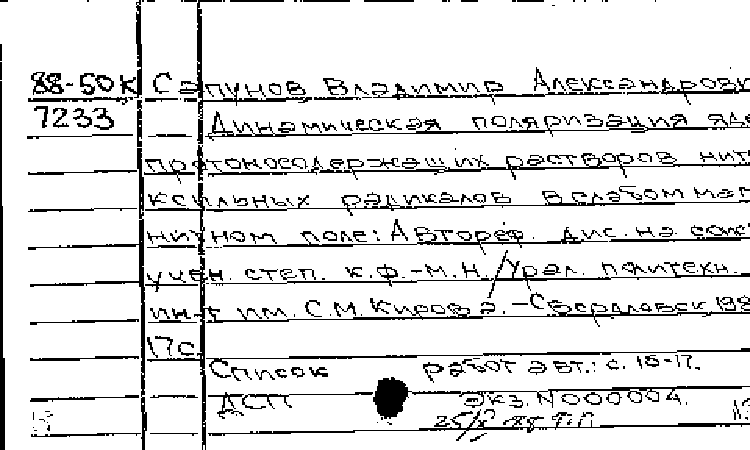 88-50к Сапунов Владимир Александрови
7233 Динамическая поляризация яде
протоносодержащих растворов нит
ксильных радикалов в слабом маг
нитном поле: Автореф. дис. на соис
учен. степ. к.ф.-м.н./Урал. политехн.
ин-т им. С.М. Кирова.-Свердловск, 198
17с.
Список работ авт.: с. 15-17.
ДСП Экз. N000004.